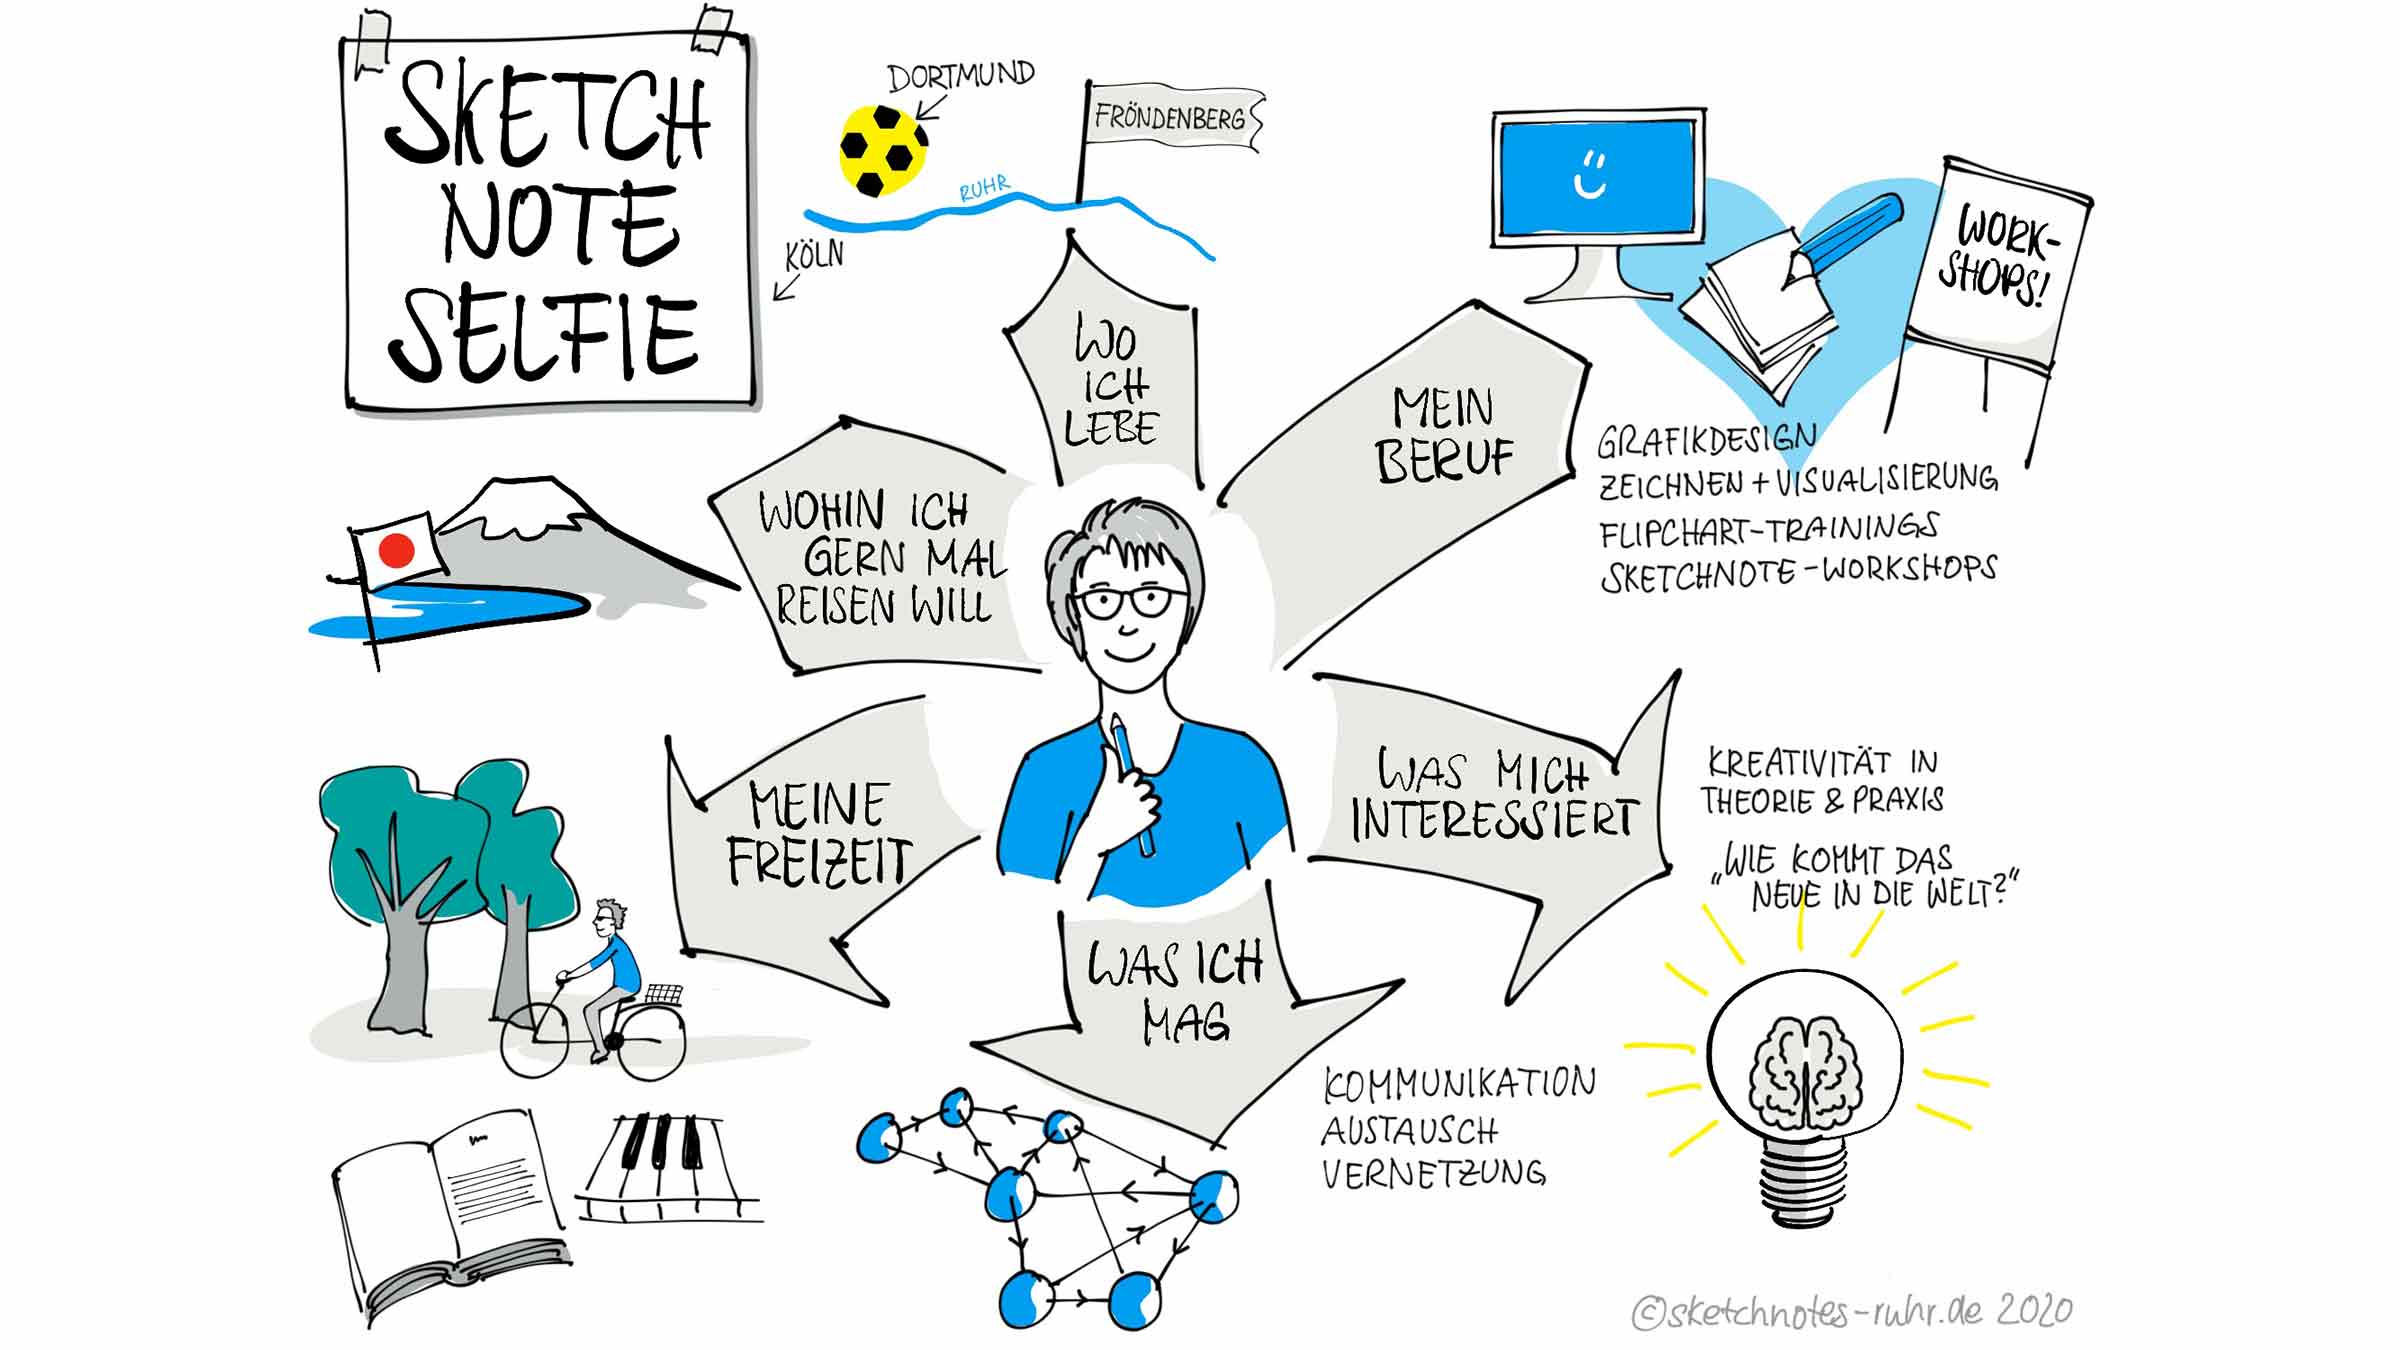 SKETCH
NOTE
SELFIE
DORTMUND
FRÖNDENBERG
RUHR
KÖLN
WO
ICH
LEBE
MEIN
BERUF
WORK-
SHOPS!
GRAFIKDESIGN
ZEICHNEN + VISUALISIERUNG
FLIPCHART-TRAININGS
SKETCHNOTE-WORKSHOPS
WOHIN ICH
GERN MAL
REISEN WILL
WAS MICH
INTERESSIERT
KREATIVITÄT IN
THEORIE & PRAXIS
„WIE KOMMT DAS
NEUE IN DIE WELT?“
MEINE
FREIZEIT
WAS ICH
MAG
KOMMUNIKATION
AUSTAUSCH
VERNETZUNG
©sketchnotes-ruhr.de 2020